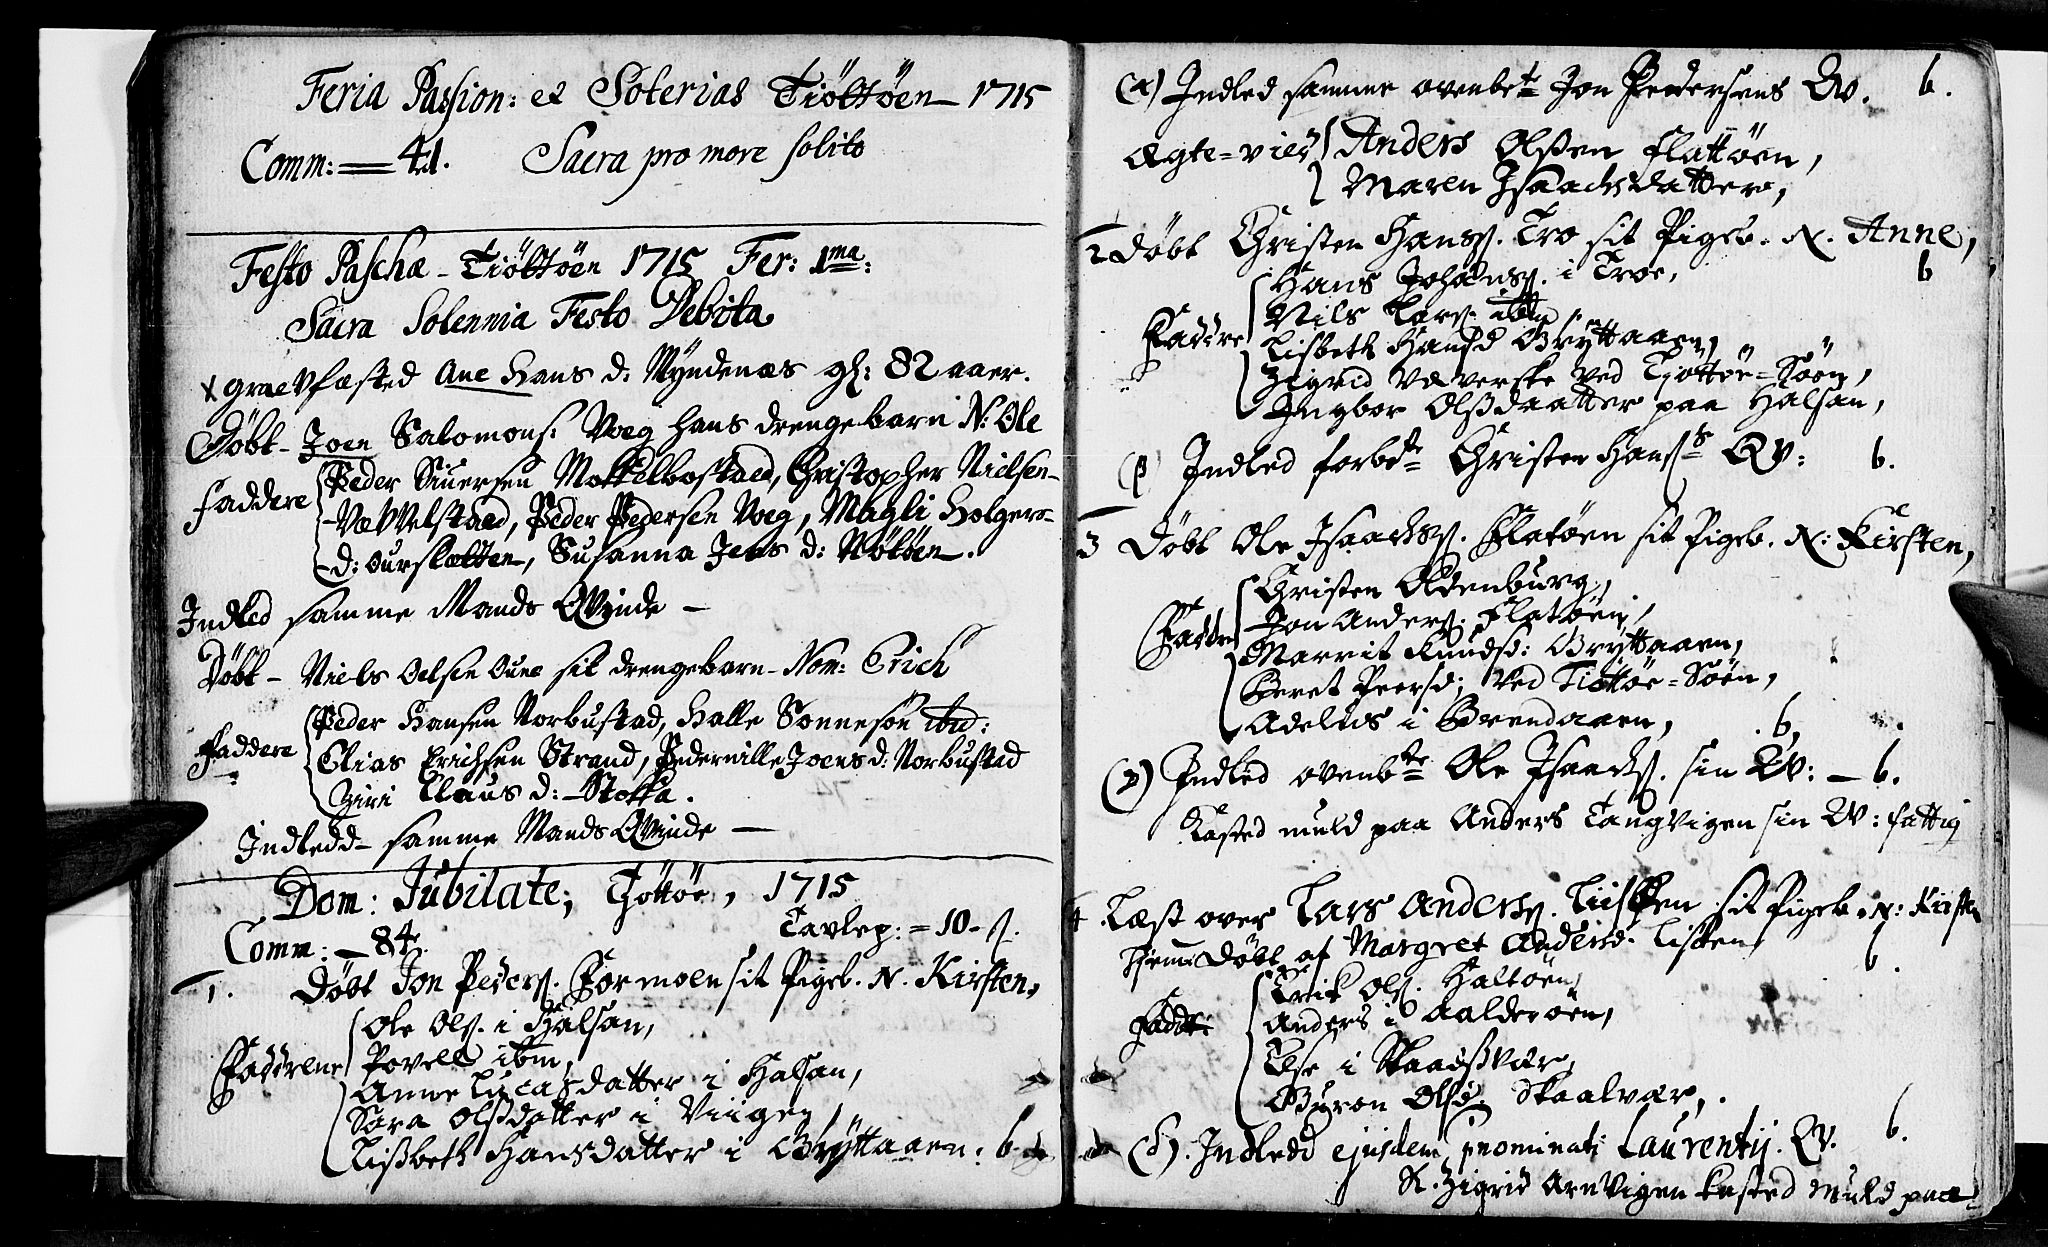 Feria Passion: et Soterias Tiöttöen 1715
Comm: = 41. Sacra pro more solito
Festo Paschæ - Tiöttöen 1715 Fer: 1ma:
Sacra Solennia Festo Debita
x graevfæsted Ane Hans d: Myndenæs gl: 82 aaer.
Döbt - Joen Salomons: Voeg hans drengebarn N: Ole
Faddere Peder Siuersen Mokkelbostaed, Christopher Nielsen
Vævvelstaed, Peder Pedersen Voeg, Magli Holgers-
d: Ourslætten, Susanna Jens d: Röröen.
Indled samme Mands Qvinde -
Döbt - Niels Oelsen Oune sit drengebarn - Nom: Erich
Faddere Peder Hansen Norbustad, Halle Sonneson ibid:
Elias Erichsen Strand, Pedernille Joens d: Norbustad
Giri Claus d: - Stokka.
Indledd - samme Mands Qvinde -
Dom: Jubilate; Tjöttöe, 1715
Comm: - 84. Tavlep: = 10 - s.
1. Döbt Jon Peders. Formoen sit Pigeb. N. Kirsten,
Ole Ols. i Halsan,
Faddrene Povell ibm,
Anne Lucasdatter i Halsan,
Sara Olsdatter i Viigen
Lissbeth Hansdatter i Bryttaaen: 6.
(α) Indled samme ovenbete Jon Pedersens Qv. 6.
Ægte-vied Anders Olssen Flattöen,
Maren Isaachsdatter,
2 Döbt Christen Hanss. Tro sit Pigeb. N. Anne,
Hans Johanss. i Troe, 6
Nils Lars. ibm
Faddre Lisbeth Hansd Bryttaaen,
Zigrid Væverske ved Tjöttöe-Söen,
Ingbor Olssdaatter paa Halsan,
(β) Indled forbte Christen Hanss Qv: 6.
3 Döbt Ole Isaachs. Flatöen sit Pigeb. N: Kirsten,
Christen Oldenburg,
Jon Anders. Flatöen,
Faddre Marrit Knudsd: Bryttaaen,
Beret Peersd; ved Tiöttöe-Söen,
Adelus i Brendaaen, 6,
(γ) Indled ovenbte Ole Isaachs. sin Qv: - 6.
Kasted muld paa Anders Tangvigen sin Qv: fattig
4 Læst over Lars Anderss. Lisken sit Pigeb. N: Kirsten
Hiemedöbt af Margret Andersd. Lisken, 6.
Erik Ols. Haltöen,
Fadd: Anders i Aalderöen,
Else i Skaadsvær,
Guron Olsd. Skaalvær,.
(δ). Indledd ejusdem pnominati Laurentij. Qv. 6.
K. Zigrid Arnvigen kasted muld paa